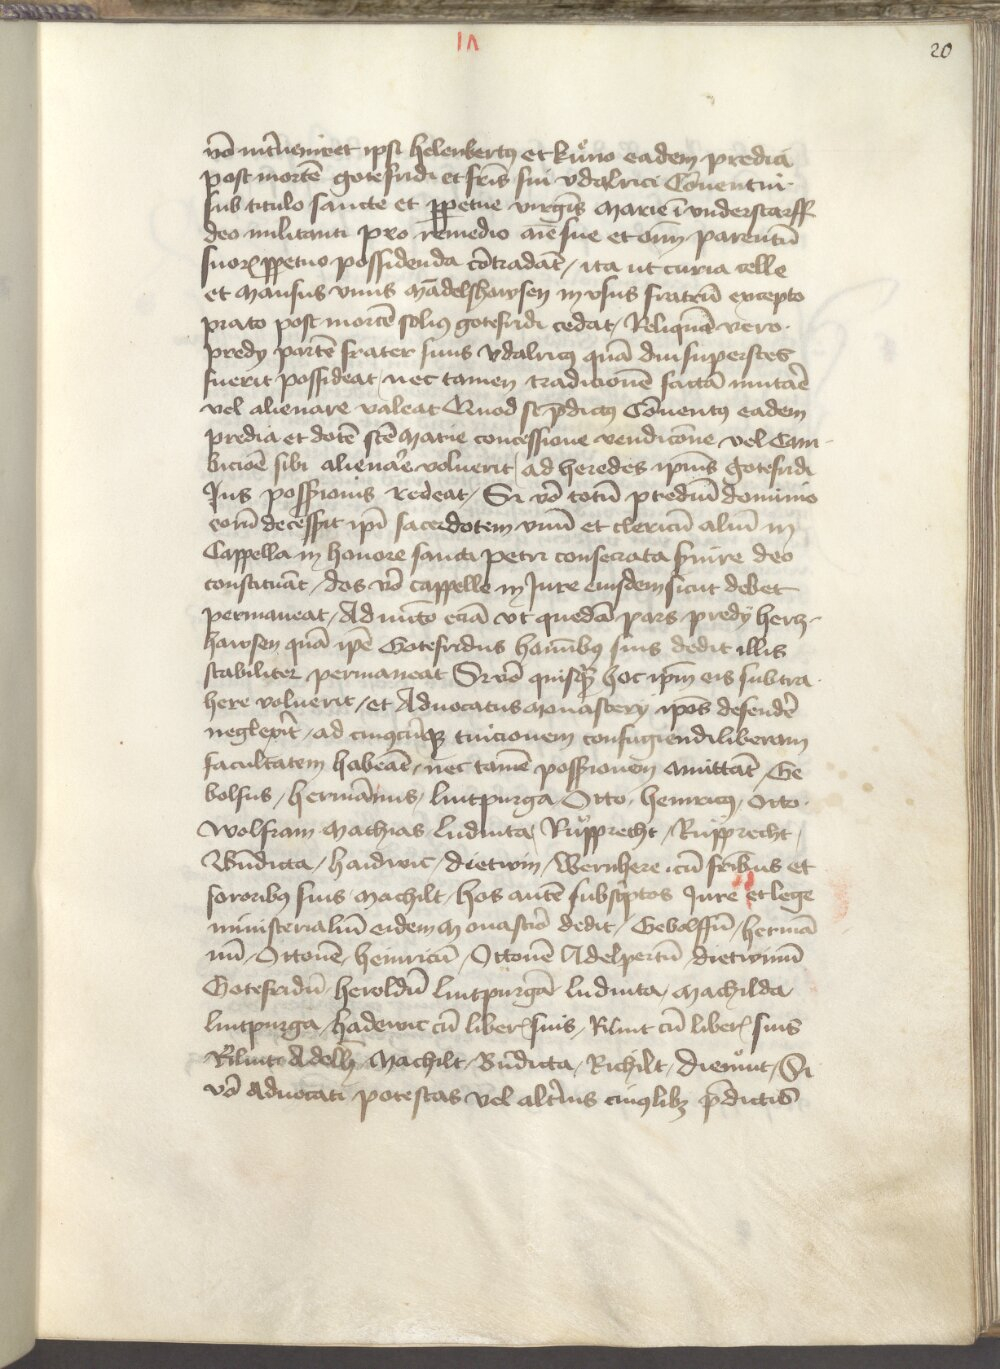 IΛ
20
vō int'ueniret ipsi helenbertꝰ et kůno eadem predia
post mortē gotefridi et fris sui vdalrici Cōuentui
sub titulo sancte et ꝑpetue virgīs Marie ī vnderstorff
deo militanti pro remedio aīe sue et oīm parentū
suorꝝ ꝑpetuo possidenda cōtradāt / ita ut curia celle
et Mansus vnus Mādelshawsen in vsus fratrū excepto
prato post mortē solius gotefridi cedat / Reliquā vero
predy partē frater suus vdalricꝰ quā diu superstes
fuerit possideat / nec tamen tradicionē factā mutare
vel alienare valeat Quod si p̄dictꝰ Cōuentꝰ eadem
predia et dotē scē Marie concessione vendicōne vel Cam-
bicioē sibi alienare voluerit / ad heredes ipius gotefridi
Jus possessionis redeat / Si vō totū prediū dominio
eorū decessit ipi sacerdotem vnū et clericū aliū in
Cappella in honore sancti petri consecrata seruire deo
constituāt / dos vō cappelle in Jure eiusdem sicut debet
permaneat / Adiūcto eciā vt quedā pars predy hertz-
hawsen quā ipē Gotefridus hominibꝰ suis dedit illis
stabiliter permaneat Si vō quisqꝫ hoc ipm eis subtra
here voluerit / et Aduocatus Monastery ipos defendere
neglexit / ad cuiuscūqꝫ tuicionem confugiendi liberam
facultatem habeāt / nec tamē possessionem Amittāt / Ge
bolfus / hermānus / liutpurga Otto / heinricꝰ / Otto
Wolfram Mathias ludiuta Růpprecht / Růpprecht /
Būdicta / haidwic / dietwin / Wernhere cū fribus et
sororibꝰ suis Machilt / hos autē subscriptos Jure et lege
ministerialiū eidem Monastio dedit / Gebolffū / hermā
nū / Ottonē / heinricū / Ottonē Adelpertū / dietwinū
Gotefridū / heroldū liutpurgā ludiuta Machilda
liutpurga / hadewic cū liberꝭ suis / Riliut cū liberꝭ suis
Riliut Adelh Machilt / Būdicta / Richilt / diemůt / Si
vō Aduocati potestas vel alterius cuiuslibꝫ p̄dictis